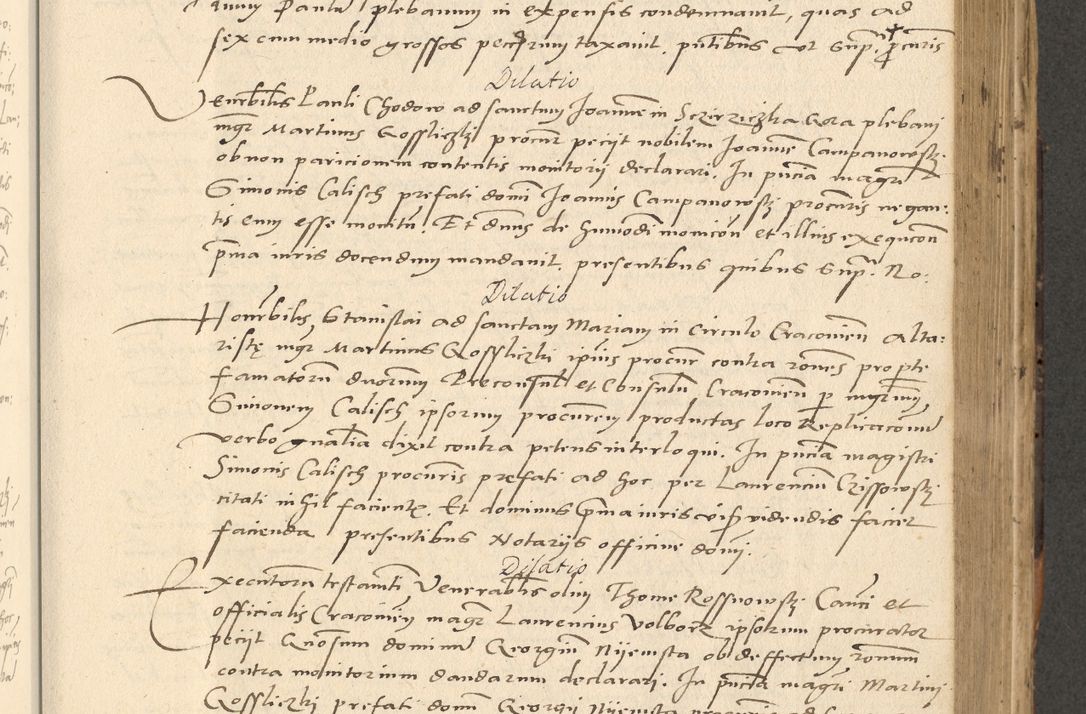 Paulu plebanum in expensis condemnauit, quas ad
sex cum medio grossos taxauit. pntibus vt Sup. pcuris
Dilatio
Venrbilis Pauli Chodow ad sanctum Joannem in Gora plebani
mgr Martinus Gossliczki procur peciit nobilem Joanne Campanowski
ob non paricionem contentis monitorii declarari. In pncia magri
Simonis Calisch prefati domi Joannis Campanowski procuris negan:
tis eum esse monitu. Et dnus de hmoi monicon et illius exequcon
pma iuris docendum mandauit. presentibus quibus Sup. No:
Dilatio
Honrbilis Stanislai ad sanctam Mariam in Circulo Cracouien Alta:
riste mgr Martinus Gossliczki ipius procur contra rones pro pte
famatoru duorum Proconsul et Consulu Cracouien p mgrum
Simonem Calisch ipsorum procurem productas loco Replicacoum
verbo gnalia dixit contra petens interloqui. In pncia magistri
Simonis Calisch procuris prefati ad hoc per Laurenciu Czissowski
citati nihil faciente. Et dominus pma iuris videndis facier
facienda presentibus Notariis officine domi.
Dilatio
Executoru testamti Venerablis olim Thome Rossnowski Canci et
officialis Cracouien magr Laurencius Volborz ipsorum procurator
peciit Gnosum dominu Georgiu Nijewsta ob deffectum ronum
contra monitorium dandarum declarari. In pncia magri Martini
Gossliczki prefati domi Georgii Nijewsta